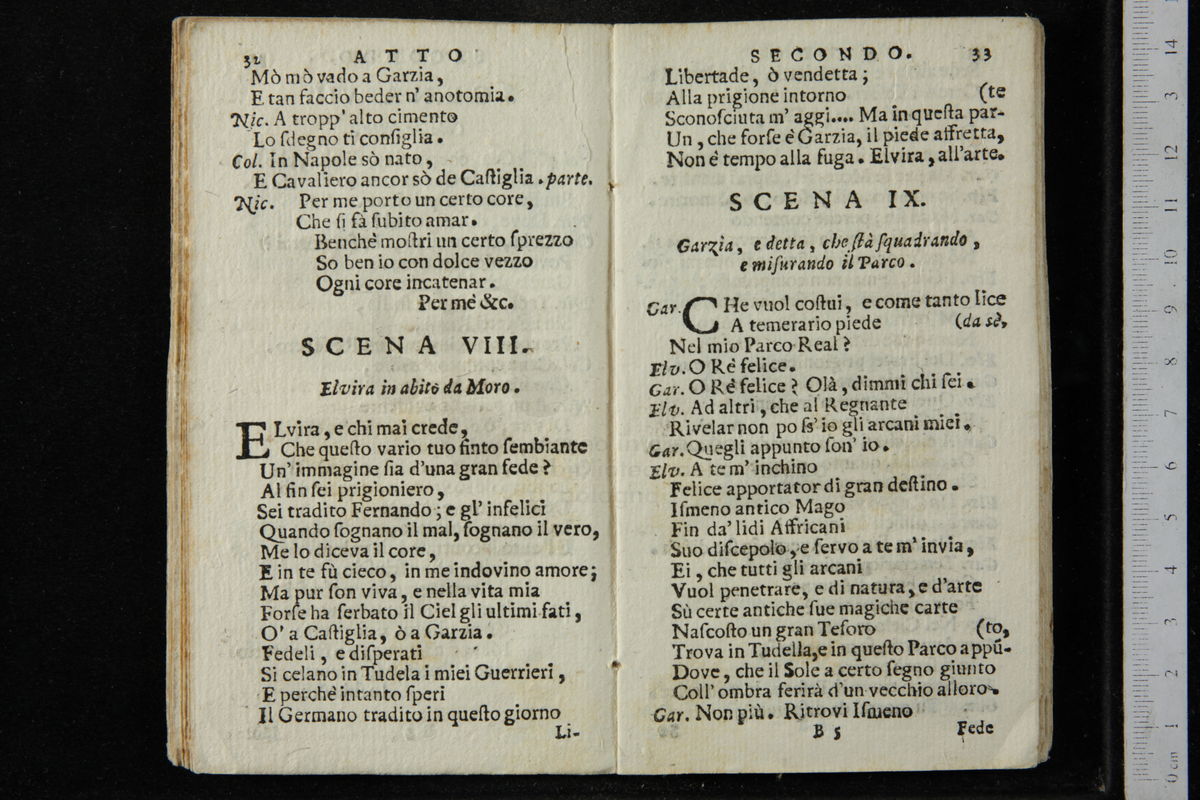 32 ATTO
Mò mò vado a Garzia,
E tan faccio beder n' anotomia.
Nic. A tropp' alto cimento
Lo ſdegno ti conſiglia.
Col. In Napole sò nato,
E Cavaliero ancor sò de Caſtiglia. parte.
Nic. Per me porto un certo core,
Che ſi fà ſubito amar.
Benchè moſtri un certo ſprezzo
So ben io con dolce vezzo
Ogni core incatenar.
Per mè &c.
SCENA VIII.
Elvira in abito da Moro.
ELvira, e chi mai crede,
Che queſto vario tuo finto ſembiante
Un' immagine ſia d'una gran fede?
Al fin ſei prigioniero,
Sei tradito Fernando; e gl' infelici
Quando ſognano il mal, ſognano il vero,
Me lo diceva il core,
E in te fù cieco, in me indovino amore;
Ma pur ſon viva, e nella vita mia
Forſe ha ſerbato il Ciel gli ultimi fati,
O' a Caſtiglia, ò a Garzia.
Fedeli, e diſperati
Si celano in Tudela i miei Guerrieri,
E perchè intanto ſperi
Il Germano tradito in queſto giorno
Li-
SECONDO. 33
Libertade, ò vendetta;
Alla prigione intorno (te
Sconoſciuta m' aggi.... Ma in queſta par-
Un, che forſe è Garzia, il piede affretta,
Non è tempo alla fuga. Elvira, all'arte.
SCENA IX.
Garzia, e detta, che ſtà ſquadrando,
e miſurando il Parco.
Gar. CHe vuol coſtui, e come tanto lice
A temerario piede (da sè,
Nel mio Parco Real?
Elv. O Rè felice.
Gar. O Rè felice? Olà, dimmi chi ſei.
Elv. Ad altri, che al Regnante
Rivelar non poſs' io gli arcani miei.
Gar. Quegli appunto ſon' io.
Elv. A te m' inchino
Felice apportator di gran deſtino.
Iſmeno antico Mago
Fin da' lidi Affricani
Suo diſcepolo, e ſervo a te m' invia,
Ei, che tutti gli arcani
Vuol penetrare, e di natura, e d'arte
Sù certe antiche ſue magiche carte
Naſcoſto un gran Teſoro (to,
Trova in Tudella, e in queſto Parco appũ-
Dove, che il Sole a certo ſegno giunto
Coll' ombra ferirà d'un vecchio alloro.
Gar. Non più. Ritrovi Iſmeno
B 5 Fede
0 cm 1 2 3 4 5 6 7 8 9 10 11 12 3 14